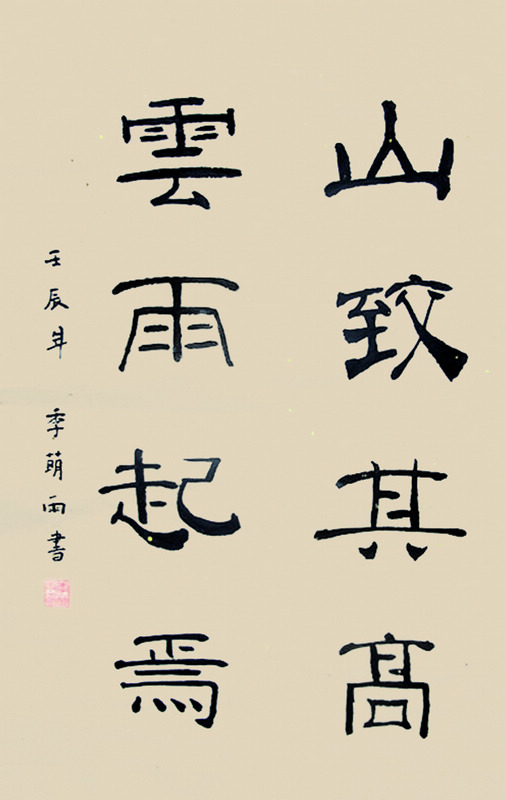 山致其高
雲雨起焉
壬辰年 季萌雨書